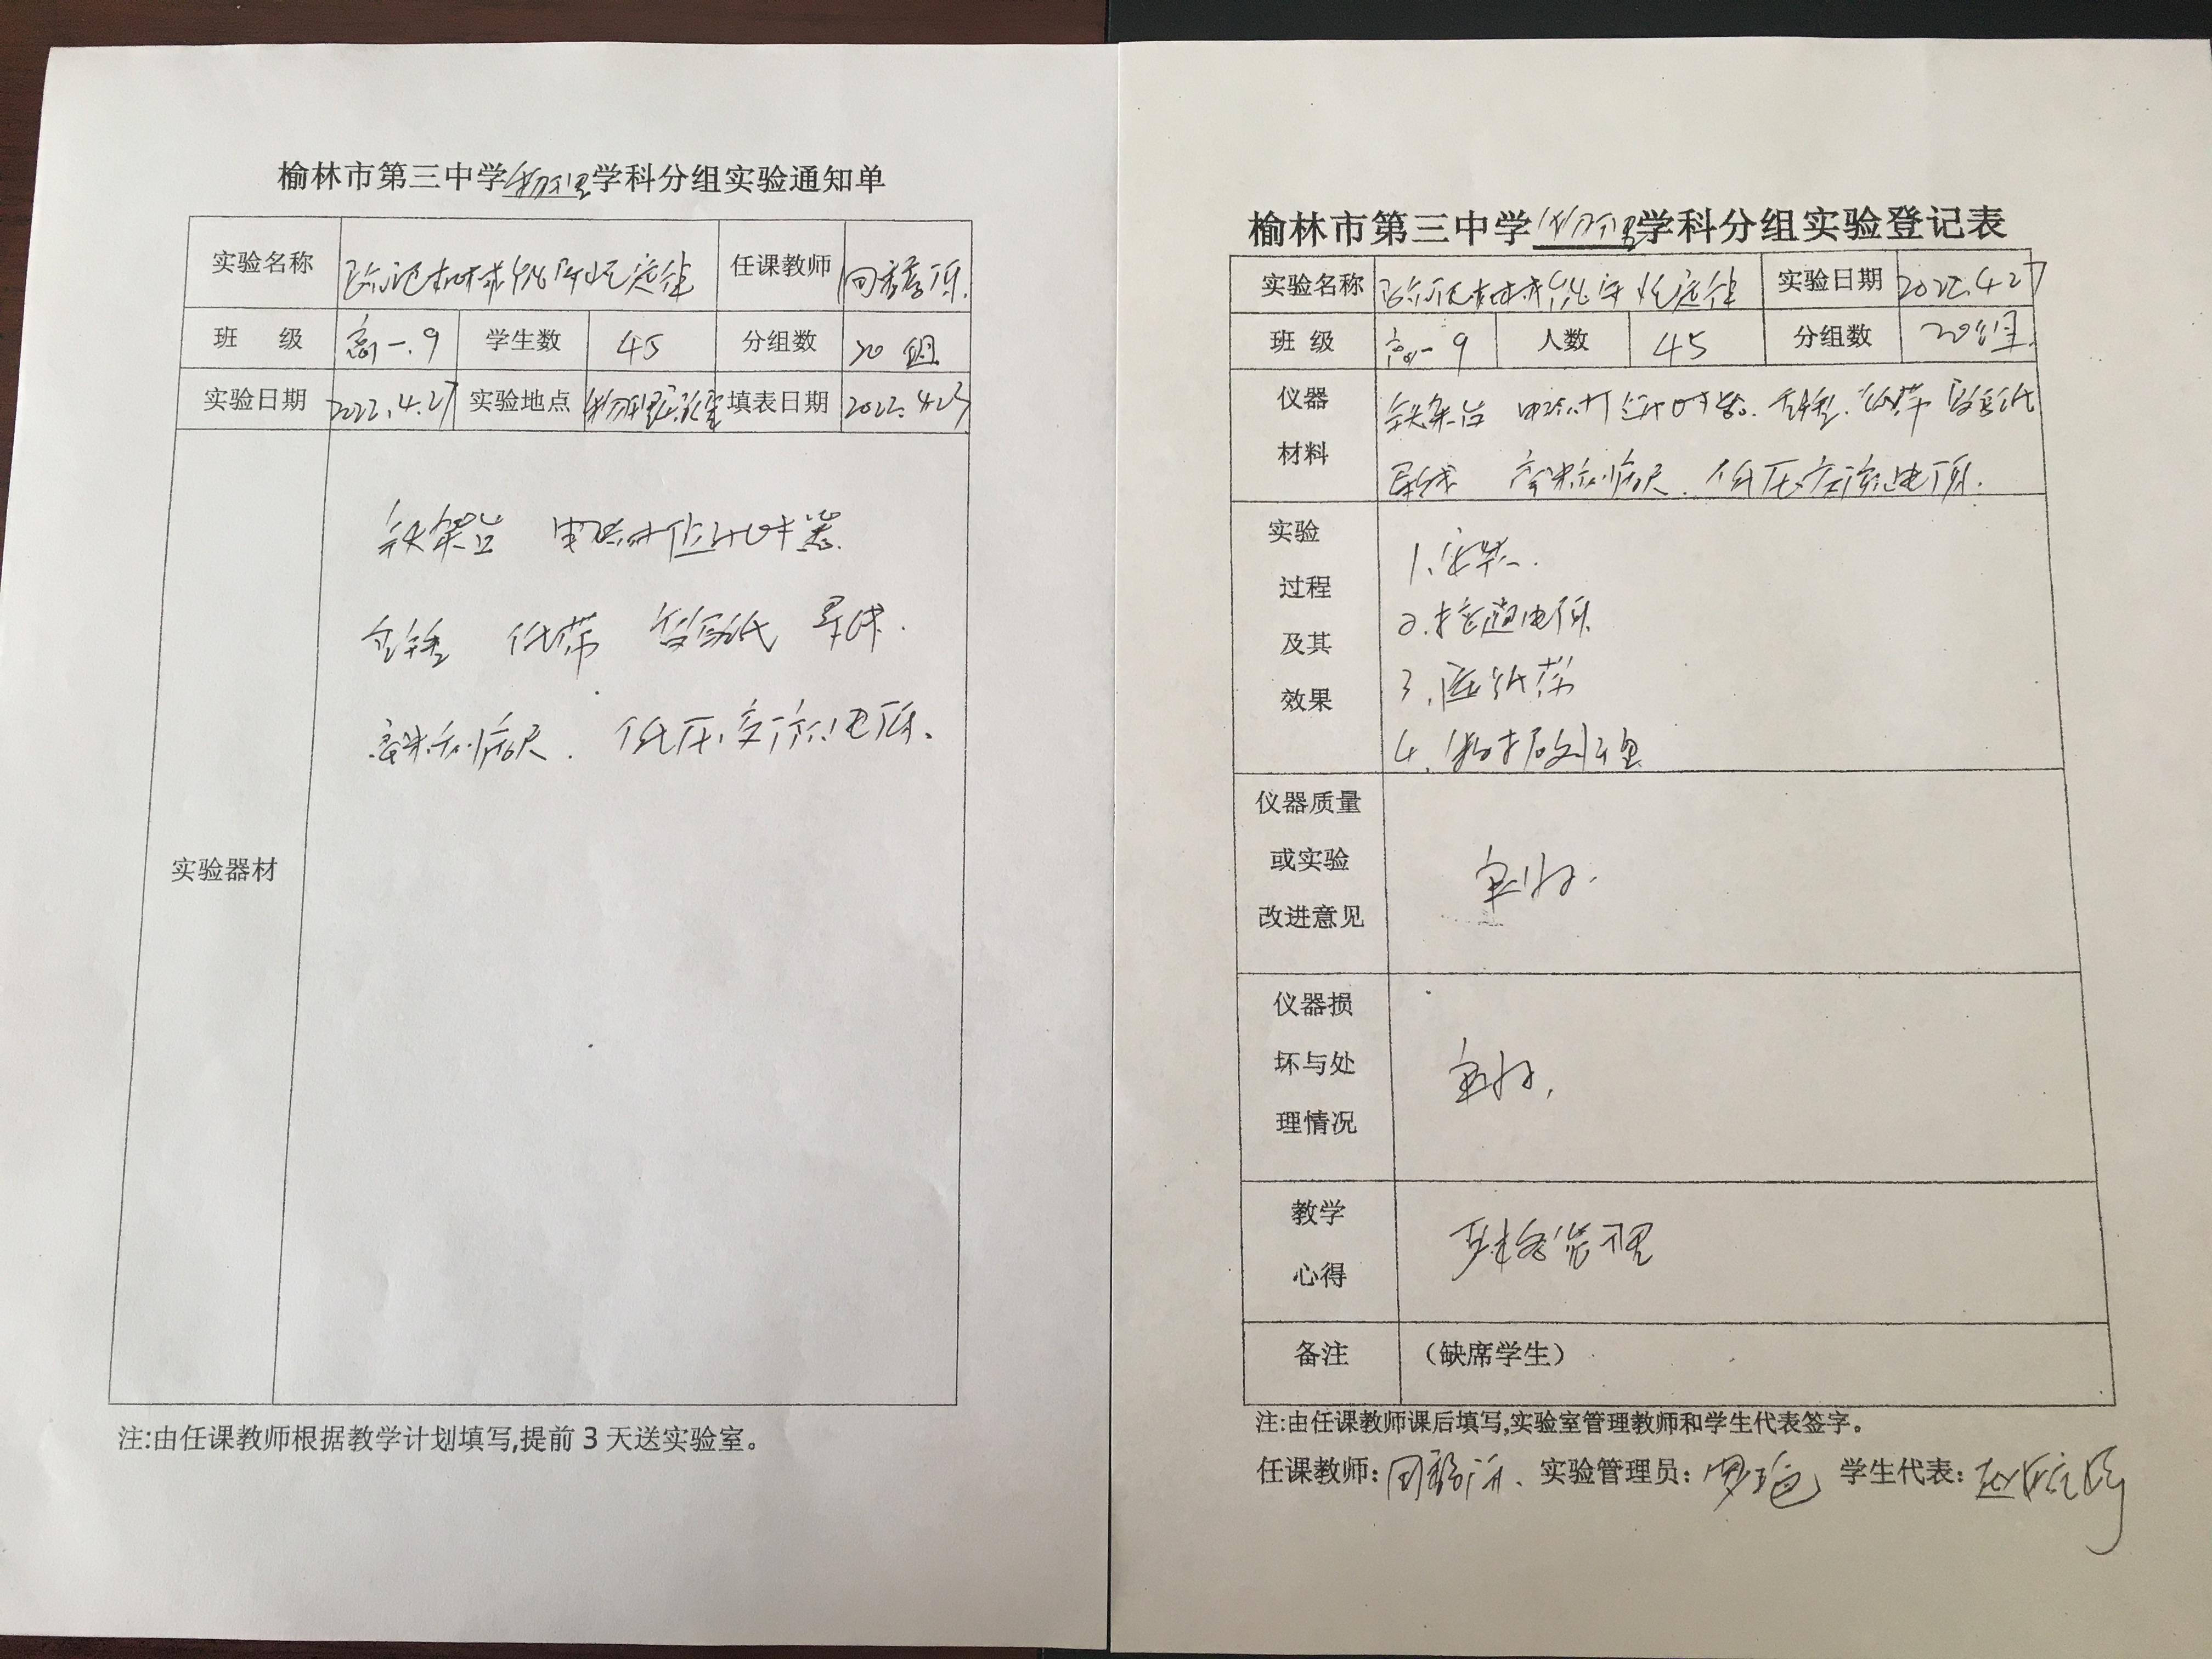 榆林市第三中学物理学科分组实验通知单
实验名称 验证机械能守恒定律 任课教师
班 级 高一.9 学生数 45 分组数 20组
实验日期 2022.4.27 实验地点 物理实验室 填表日期 2022.4.23
铁架台 电磁打点计时器
重锤 纸带 复写纸 导线.
毫米刻度尺. 低压交流电源.
实验器材
注:由任课教师根据教学计划填写,提前 3 天送实验室。
榆林市第三中学物理学科分组实验登记表
实验名称 验证机械能守恒定律 实验日期 2022.4.27
班 级 高一 9 人数 45 分组数 20组.
仪器 铁架台 电磁打点计时器. 重锤. 纸带 复写纸
材料 导线 毫米刻度尺. 低压交流电源.
实验 1、安装.
过程 2.接通电源
及其 3.选纸带
效果 4.数据处理
仪器质量
或实验 完好.
改进意见
仪器损
坏与处 完好.
理情况
教学 严格管理
心得
备注 （缺席学生）
注:由任课教师课后填写,实验室管理教师和学生代表签字。
任课教师: 实验管理员: 学生代表: